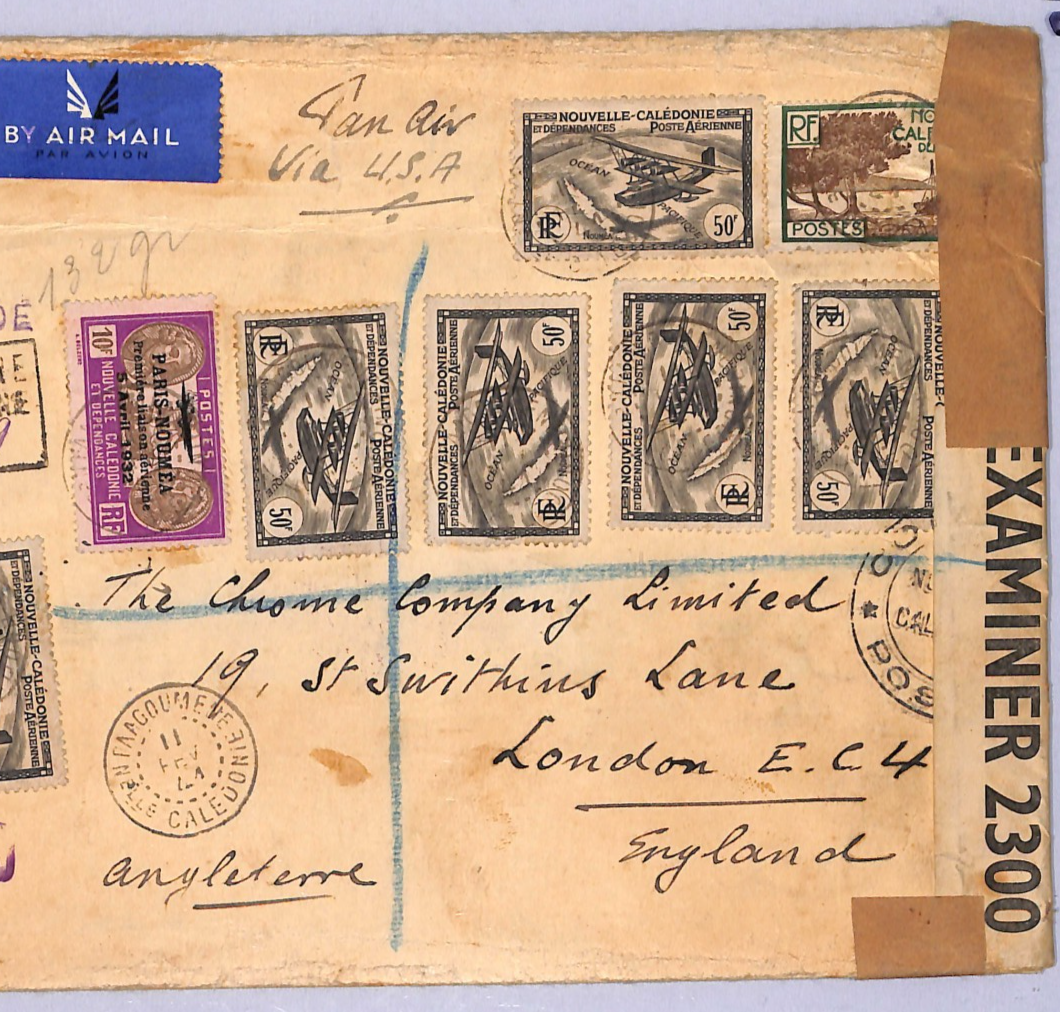 BY AIR MAIL
PAR AVION
Pan Air
Via U.S.A
NOUVELLE-CALÉDONIE
ET DÉPENDANCES POSTE AÉRIENNE
OCÉAN
PACIFIQUE
RF
50F
RF
POSTES
132 gr
DE
10F
POSTES
NOUVELLE CALÉDONIE
ET DÉPENDANCES
RF
PARIS-NOUMÉA
Première liaison aérienne
5 Avril 1932
NOUVELLE-CALÉDONIE
ET DÉPENDANCES
POSTE AÉRIENNE
OCÉAN
PACIFIQUE
RF
50F
NOUVELLE-CALÉDONIE
ET DÉPENDANCES
POSTE AÉRIENNE
OCÉAN
PACIFIQUE
RF
50F
NOUVELLE-CALÉDONIE
ET DÉPENDANCES
POSTE AÉRIENNE
OCÉAN
PACIFIQUE
RF
50F
NOUVELLE-C
ET DÉPENDANCES
POSTE AÉRIENNE
OCÉAN
PACIFIQUE
RF
50F
NOUVELLE-CALÉDONIE
ET DÉPENDANCES
POSTE AÉRIENNE
The Chrome Company Limited
19, St Swithins Lane
London E.C 4
England
Angleterre
PAAGOUMENE
11
Nelle CALEDONIE
CAL
POS
EXAMINER 2300